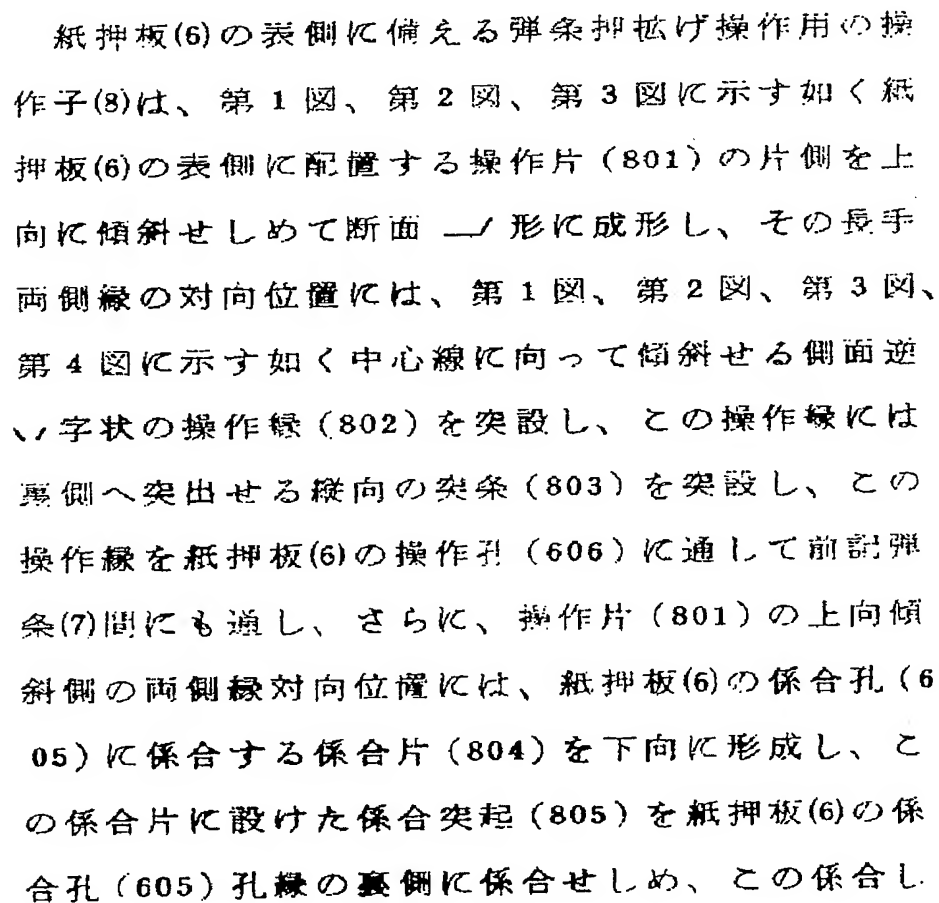 紙押板(6)の表側に備える弾条押拡げ操作用の操
作子(8)は、第1図、第2図、第3図に示す如く紙
押板(6)の表側に配置する操作片(801)の片側を上
向に傾斜せしめて断面 __/ 形に成形し、その長手
両側縁の対向位置には、第1図、第2図、第3図、
第4図に示す如く中心線に向って傾斜せる側面逆
\/字状の操作縁(802)を突設し、この操作縁には
裏側へ突出せる縦向の突条(803)を突設し、この
操作縁を紙押板(6)の操作孔(606)に通して前記弾
条(7)間にも通し、さらに、操作片(801)の上向傾
斜側の両側縁対向位置には、紙押板(6)の係合孔(6
05)に係合する係合片(804)を下向に形成し、こ
の係合片に設けた係合突起(805)を紙押板(6)の係
合孔(605)孔縁の裏側に係合せしめ、この係合し